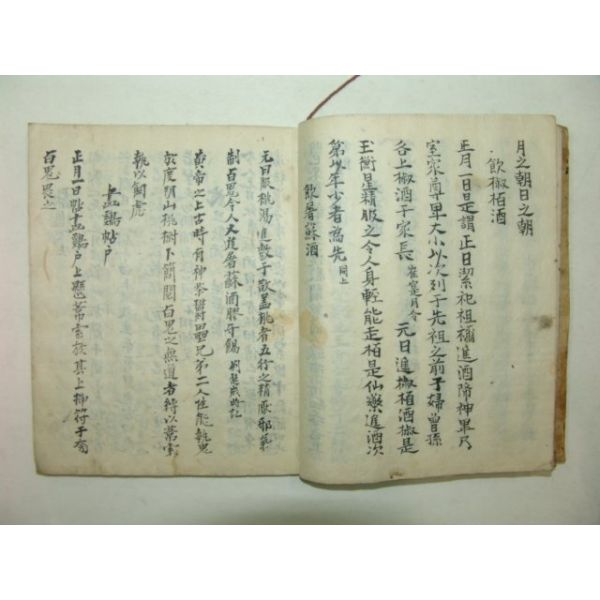 月之朝日之朝
飲椒栢酒
正月一日是謂正日潔祀祖禰進酒降神畢乃
室家尊卑大小以次列于先祖之前子婦曾孫
各上椒酒于家長崔寔月令元日進椒栢酒椒是
玉衡星精服之令人身輕能走栢是仙藥進酒次
第以年少者爲先同上
飲屠蘇酒
元日服桃湯進敷于散盖桃者五行之精厭邪氣
制百鬼令人又造屠蘇酒膠牙餳
黃帝之上古時有神荼鬱壘兄弟二人性能執鬼
於度朔山桃樹下簡閱百鬼之無道者縛以葦索
執以飼虎
畫鷄帖戶
正月一日帖畫鷄戶上懸葦索於其上揷符于旁
百鬼畏之